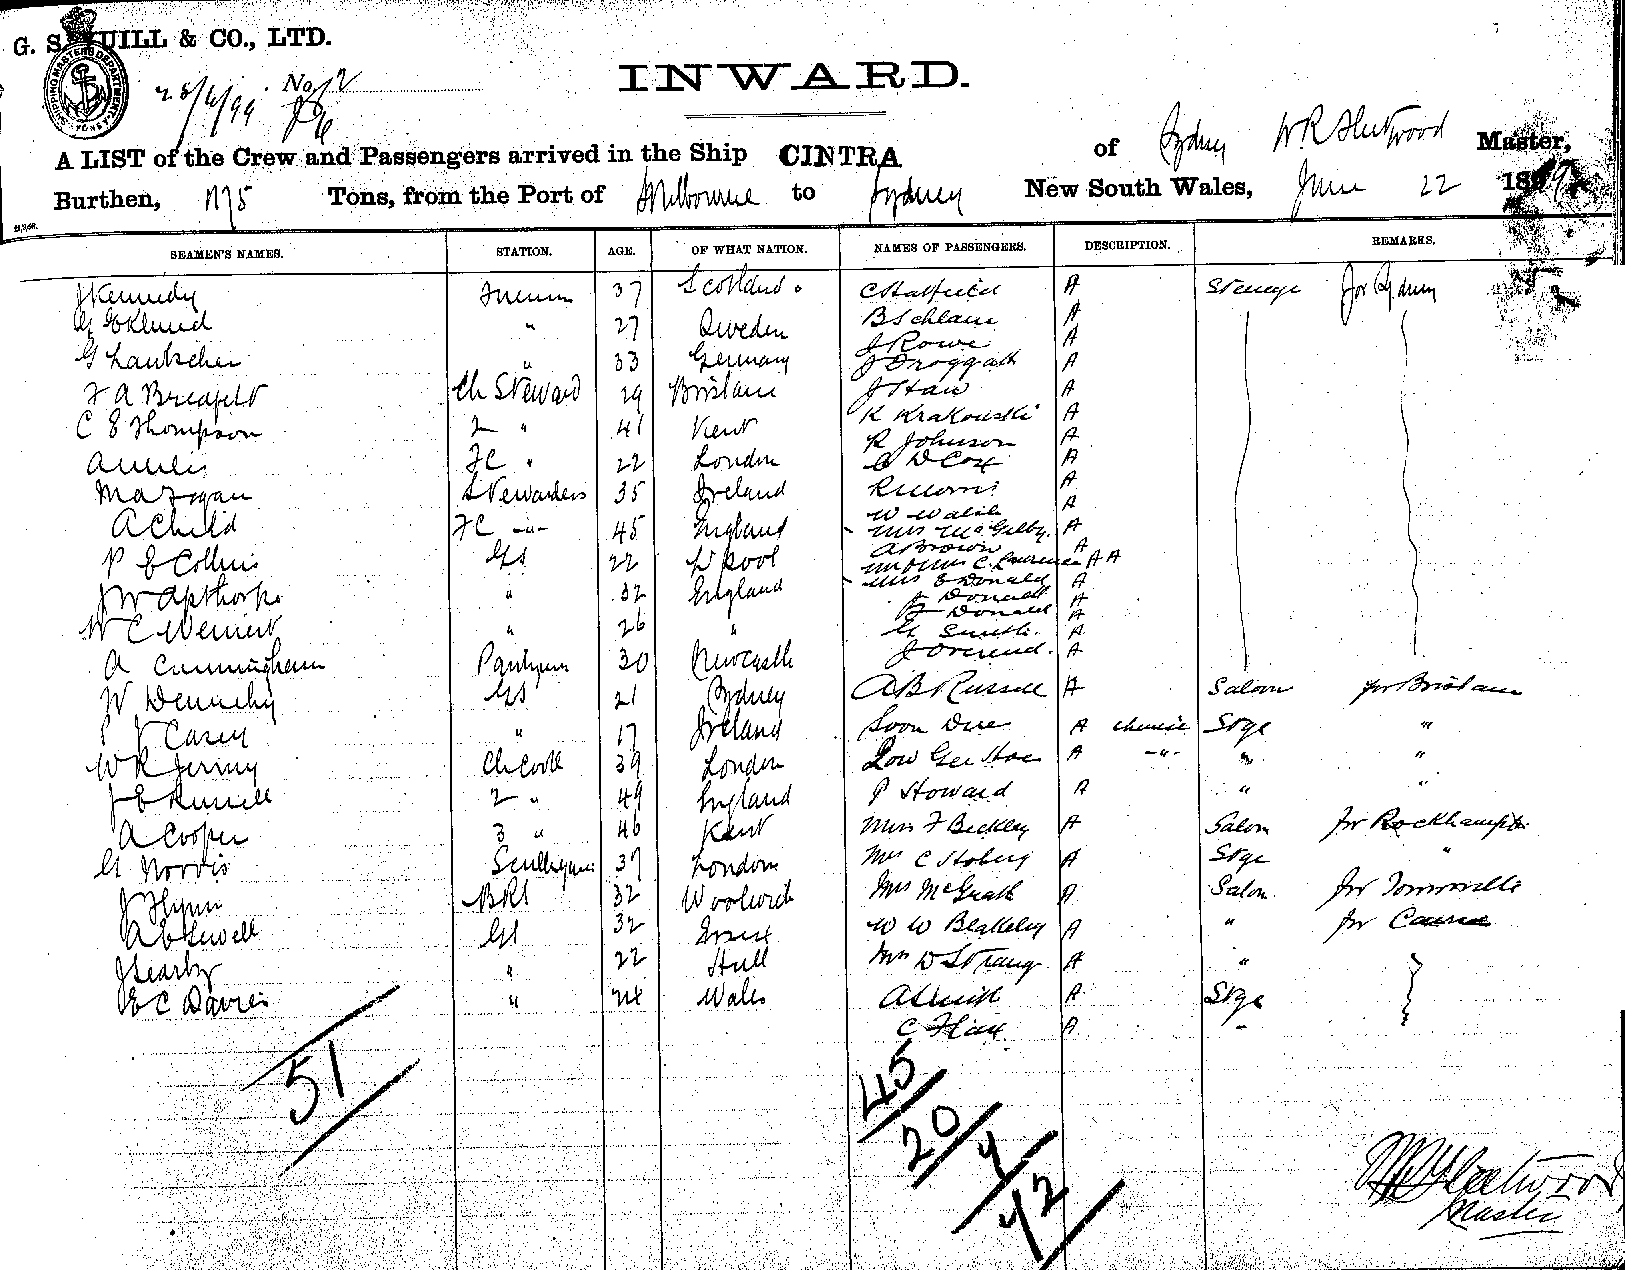 G. S. YUILL & CO., LTD.
No 2
INWARD.
A LIST of the Crew and Passengers arrived in the Ship CINTRA of Sydney W R Fleetwood Master,
Burthen, 1175 Tons, from the Port of Melbourne to Sydney New South Wales, June 22 1899
SEAMEN'S NAMES. STATION. AGE. OF WHAT NATION. NAMES OF PASSENGERS. DESCRIPTION. REMARKS.
J Kennedy 37 Scotland C Hatfield A Steerage for Sydney
G Eklund " 27 Sweden A
G " 33 Germany J Rowe A
J Froggatt A
F A Ch Steward 29 Brisbane J Haw A
C E Thompson 2 " 41 Kent R Krakouski A
R Johnson A
FC " 22 London D Cox A
Stewardess 35 Ireland R Morris A
W Walsh A
A Child FC -"- 45 England Mrs A
A Brown A
P E Collins GS 22 L'pool Mr & Mrs C Lawrence A A
J W Apthorpe " 32 England Mrs E Donald A
J Donald A
W C " 26 " F Donald A
G Smith. A
A Cunningham Pantryman 30 Newcastle J A
W Dennehy GS 21 Sydney A B Russell A Saloon for Brisbane
P J Casey " 17 Ireland Soon A Chinese Stge "
W R Ch Cook 39 London Low Gee A -"- " "
J E Russell 2 " 49 England P Howard A " "
A Cooper 3 " 46 Kent Miss F Beckley A Saloon for Rockhampton
G Norris Scullryman 37 London Mrs C A Stge "
J Flynn BRS 32 Woolwich Mrs McGrath A Saloon for Townsville
A E Sewell GS 32 Essex W W Blakeley A " for Cairns
J Searby " 22 Hull Mrs D Strang A "
E C Davies " 24 Wales A Smith A Stge
C A
51
45
20
4
42
W R Fleetwood
Master